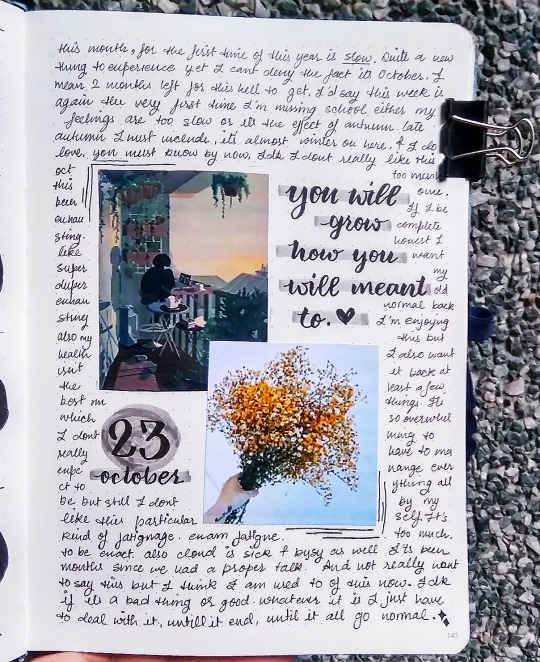 this month, for the first time of this year is slow. Quite a new
thing to experience yet I cant deny the fact its October. I
mean 2 months left for this hell to get. I'd say this week is
again the very first time I'm missing school either my
feelings are too slow or its the effect of autumn late
autumn I must include, its almost winter on here. & I do
love, you must know by now, Idk I dont really like this
oct
this
been
exhau
sting.
like
super
duper
exhau
sting
also my
health
isn't
the
best rn
which
I dont
really
expe
ct to
be but still I dont
like this particular
kind of fatignage. exam fatigue.
you will
grow
how you
will meant
to.
23
october
too much
ome.
If I be
complete
honest I
want
my
old
normal back
I'm enjoying
this but
I also want
it back at
least a few
things. Its
so overwhel
ming to
have to ma
nange ever
ything all
by my
self. It's
too much.
to be exact. also cloud is sick & busy as well. It's been
months since we had a proper talk. And not really want
to say this but I think I am used to of this now. Idk
if its a bad thing or good. whatever it is I just have
to deal with it, untill it end, until it all go normal.
143